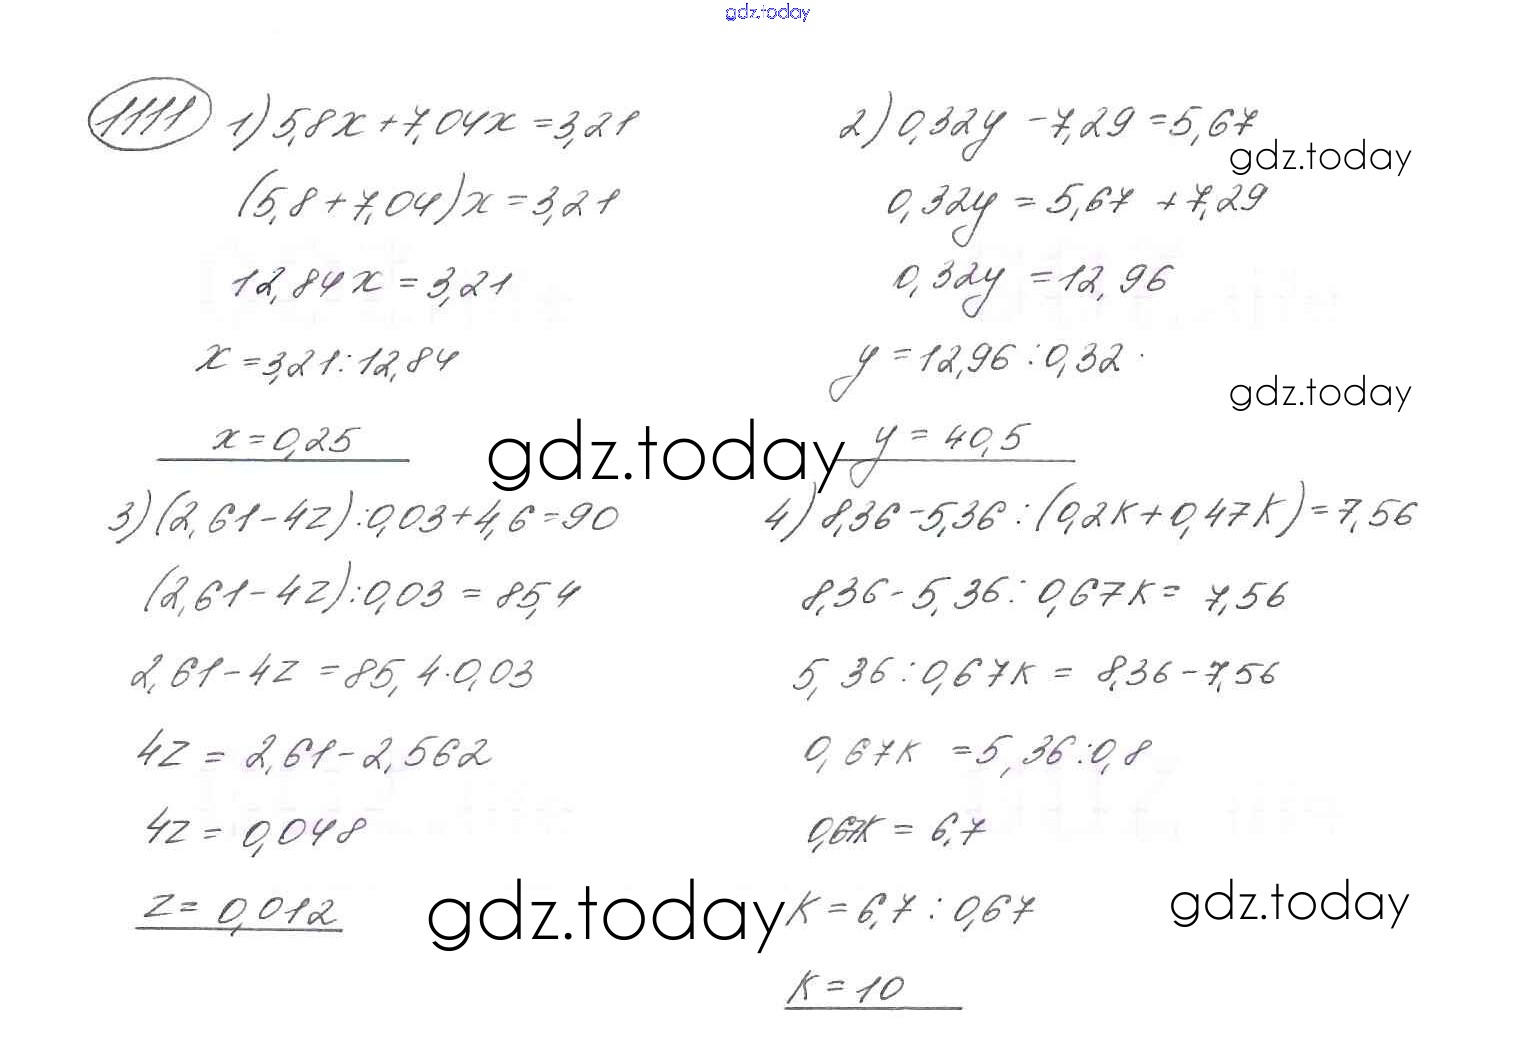 gdz.today
1111
1) 5,8x + 7,04x = 3,21
(5,8 + 7,04)x = 3,21
12,84x = 3,21
x = 3,21 : 12,84
x = 0,25
2) 0,32y - 7,29 = 5,67
gdz.today
0,32y = 5,67 + 7,29
0,32y = 12,96
y = 12,96 : 0,32
gdz.today
y = 40,5
gdz.today
3) (2,61 - 4z) : 0,03 + 4,6 = 90
(2,61 - 4z) : 0,03 = 85,4
2,61 - 4z = 85,4 · 0,03
4z = 2,61 - 2,562
4z = 0,048
z = 0,012
gdz.today
4) 8,36 - 5,36 : (0,2k + 0,47k) = 7,56
8,36 - 5,36 : 0,67k = 7,56
5,36 : 0,67k = 8,36 - 7,56
0,67k = 5,36 : 0,8
0,67k = 6,7
k = 6,7 : 0,67
gdz.today
k = 10